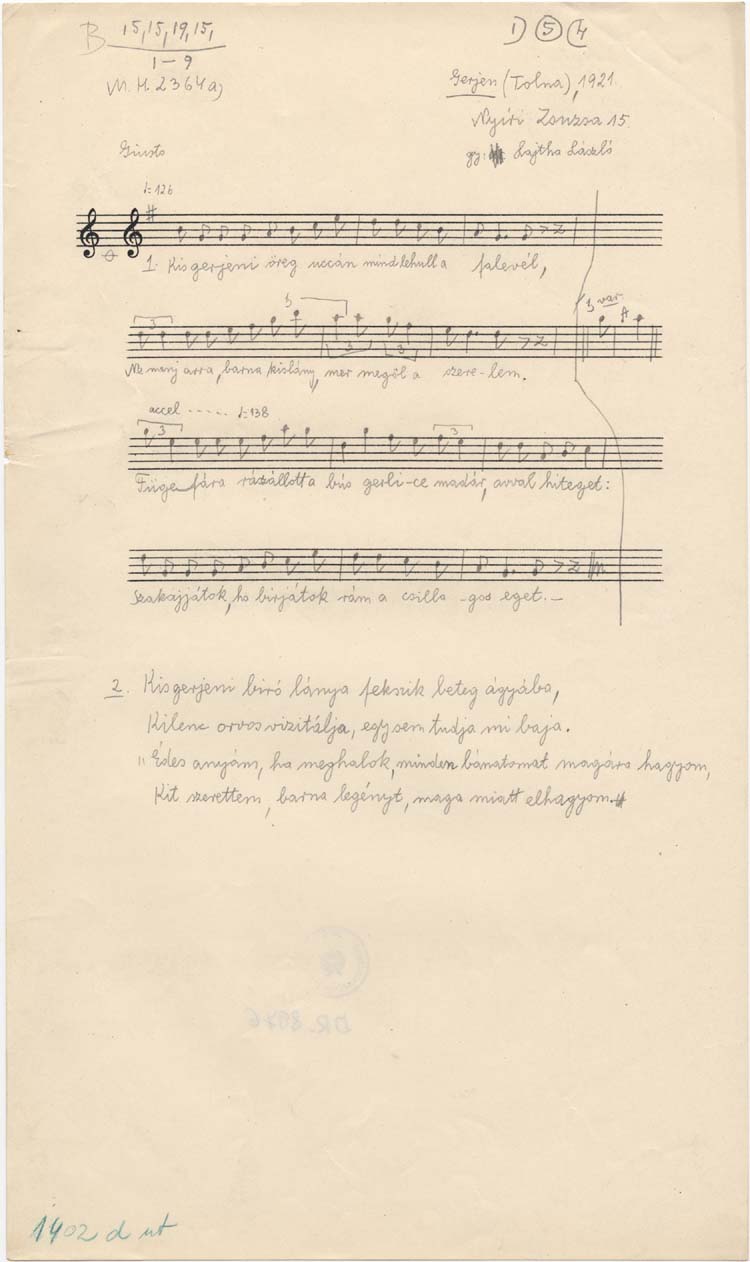 B 15, 15, 19, 15,
1-9
M. H. 2364 a)
1) 5 (4
Gerjen (Tolna), 1921.
Nyíri Zsuzsa 15.
gy: Lajtha László
Giusto
♩=126
1. Kisgerjeni öreg uccán mind lehull a falevél,
3 5 3 3 3 var.
Ne menj arra, barna kislány, mer megöl a szere-lem.
accel ----- ♩=138
3 3
Füge fára rászállott a bús gerli-ce madár, avval hiteget:
Szakajjátok, ho birjátok rám a csilla -gos eget.-
2. Kisgerjeni biró lánya fekszik beteg ágyába,
Kilenc orvos vizitálja, egy sem tudja mi baja.
" Édes anyám, ha meghalok, minden bánatomat magára hagyom,
Kit szerettem, barna legényt, maga miatt elhagyom."
1402 d ut